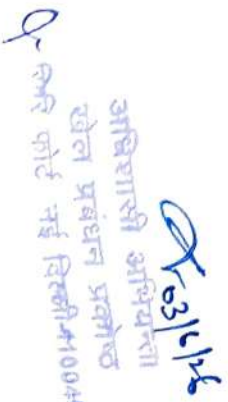 03/6/26
अधिशासी अभियन्ता
खेल प्रबंधन प्रकोष्ठ
सिरी फोर्ट नई दिल्ली-110049